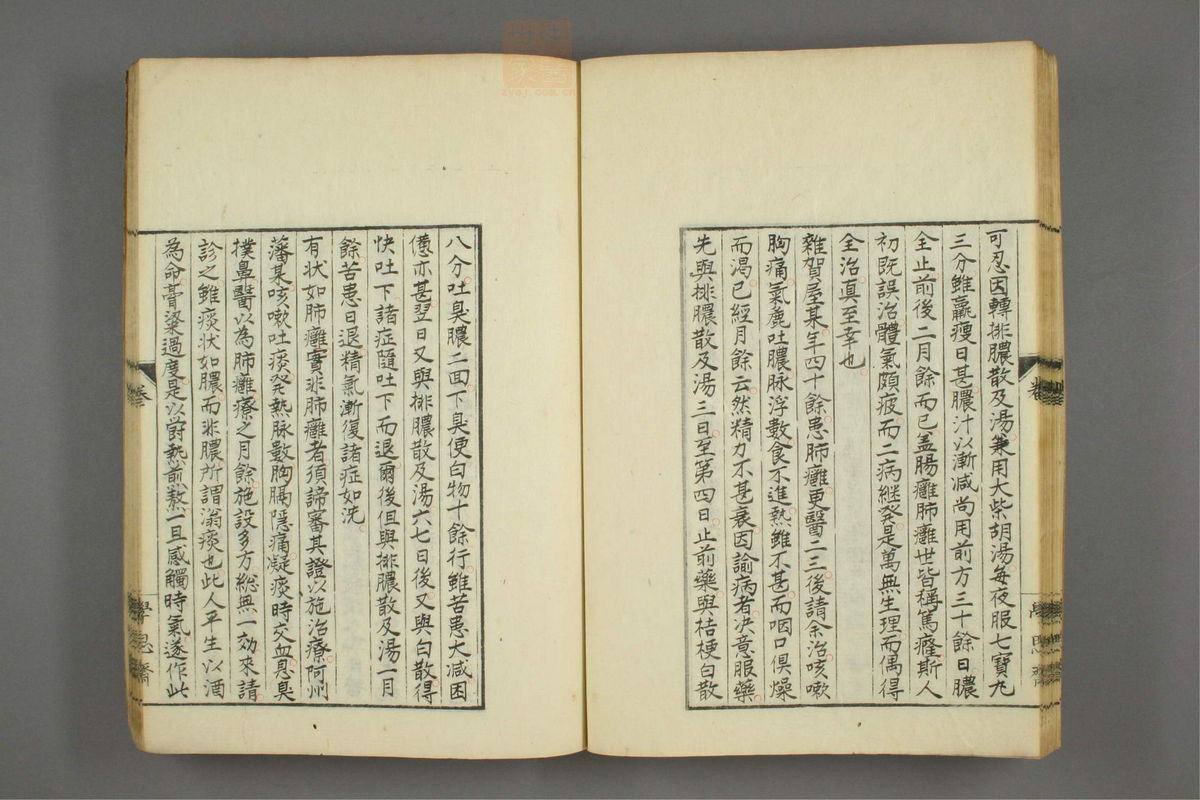 可忍因轉排膿散及湯兼用大柴胡湯每夜服七寶丸
三分雖羸瘦日甚膿汁以漸减尚用前方三十餘日膿
全止前後二月餘而已盖腸癰肺癰世皆稱篤癃斯人
初既誤治體氣頗疲而二病継発是萬無生理而偶得
全治真至幸也
雜賀屋某年四十餘患肺癰更醫二三後請余治咳嗽
胸痛氣麁吐膿脉浮數食不進熱雖不甚而咽口俱燥
而渇已經月餘云然精力不甚衰因諭病者决意服藥
先與排膿散及湯三日至第四日止前藥與桔梗白散
八分吐臭膿二回下臭便白物十餘行雖苦患大减困
憊亦甚翌日又與排膿散及湯六七日後又與白散得
快吐下諸症隨吐下而退爾後但與排膿散及湯一月
餘苦患日退精氣漸復諸症如洗
有状如肺癰實非肺癰者須諦審其證以施治療阿州
藩某咳嗽吐痰発熱脉數胸膈隱痛凝痰時交血息臭
撲鼻醫以為肺癰療之月餘施設多方総無一効來請
診之雖痰状如膿而非膿所謂滃痰也此人平生以酒
為命膏粱過度是以欝熱煎熬一旦感觸時氣遂作此
卷
學思齋
zyaj.com.cn